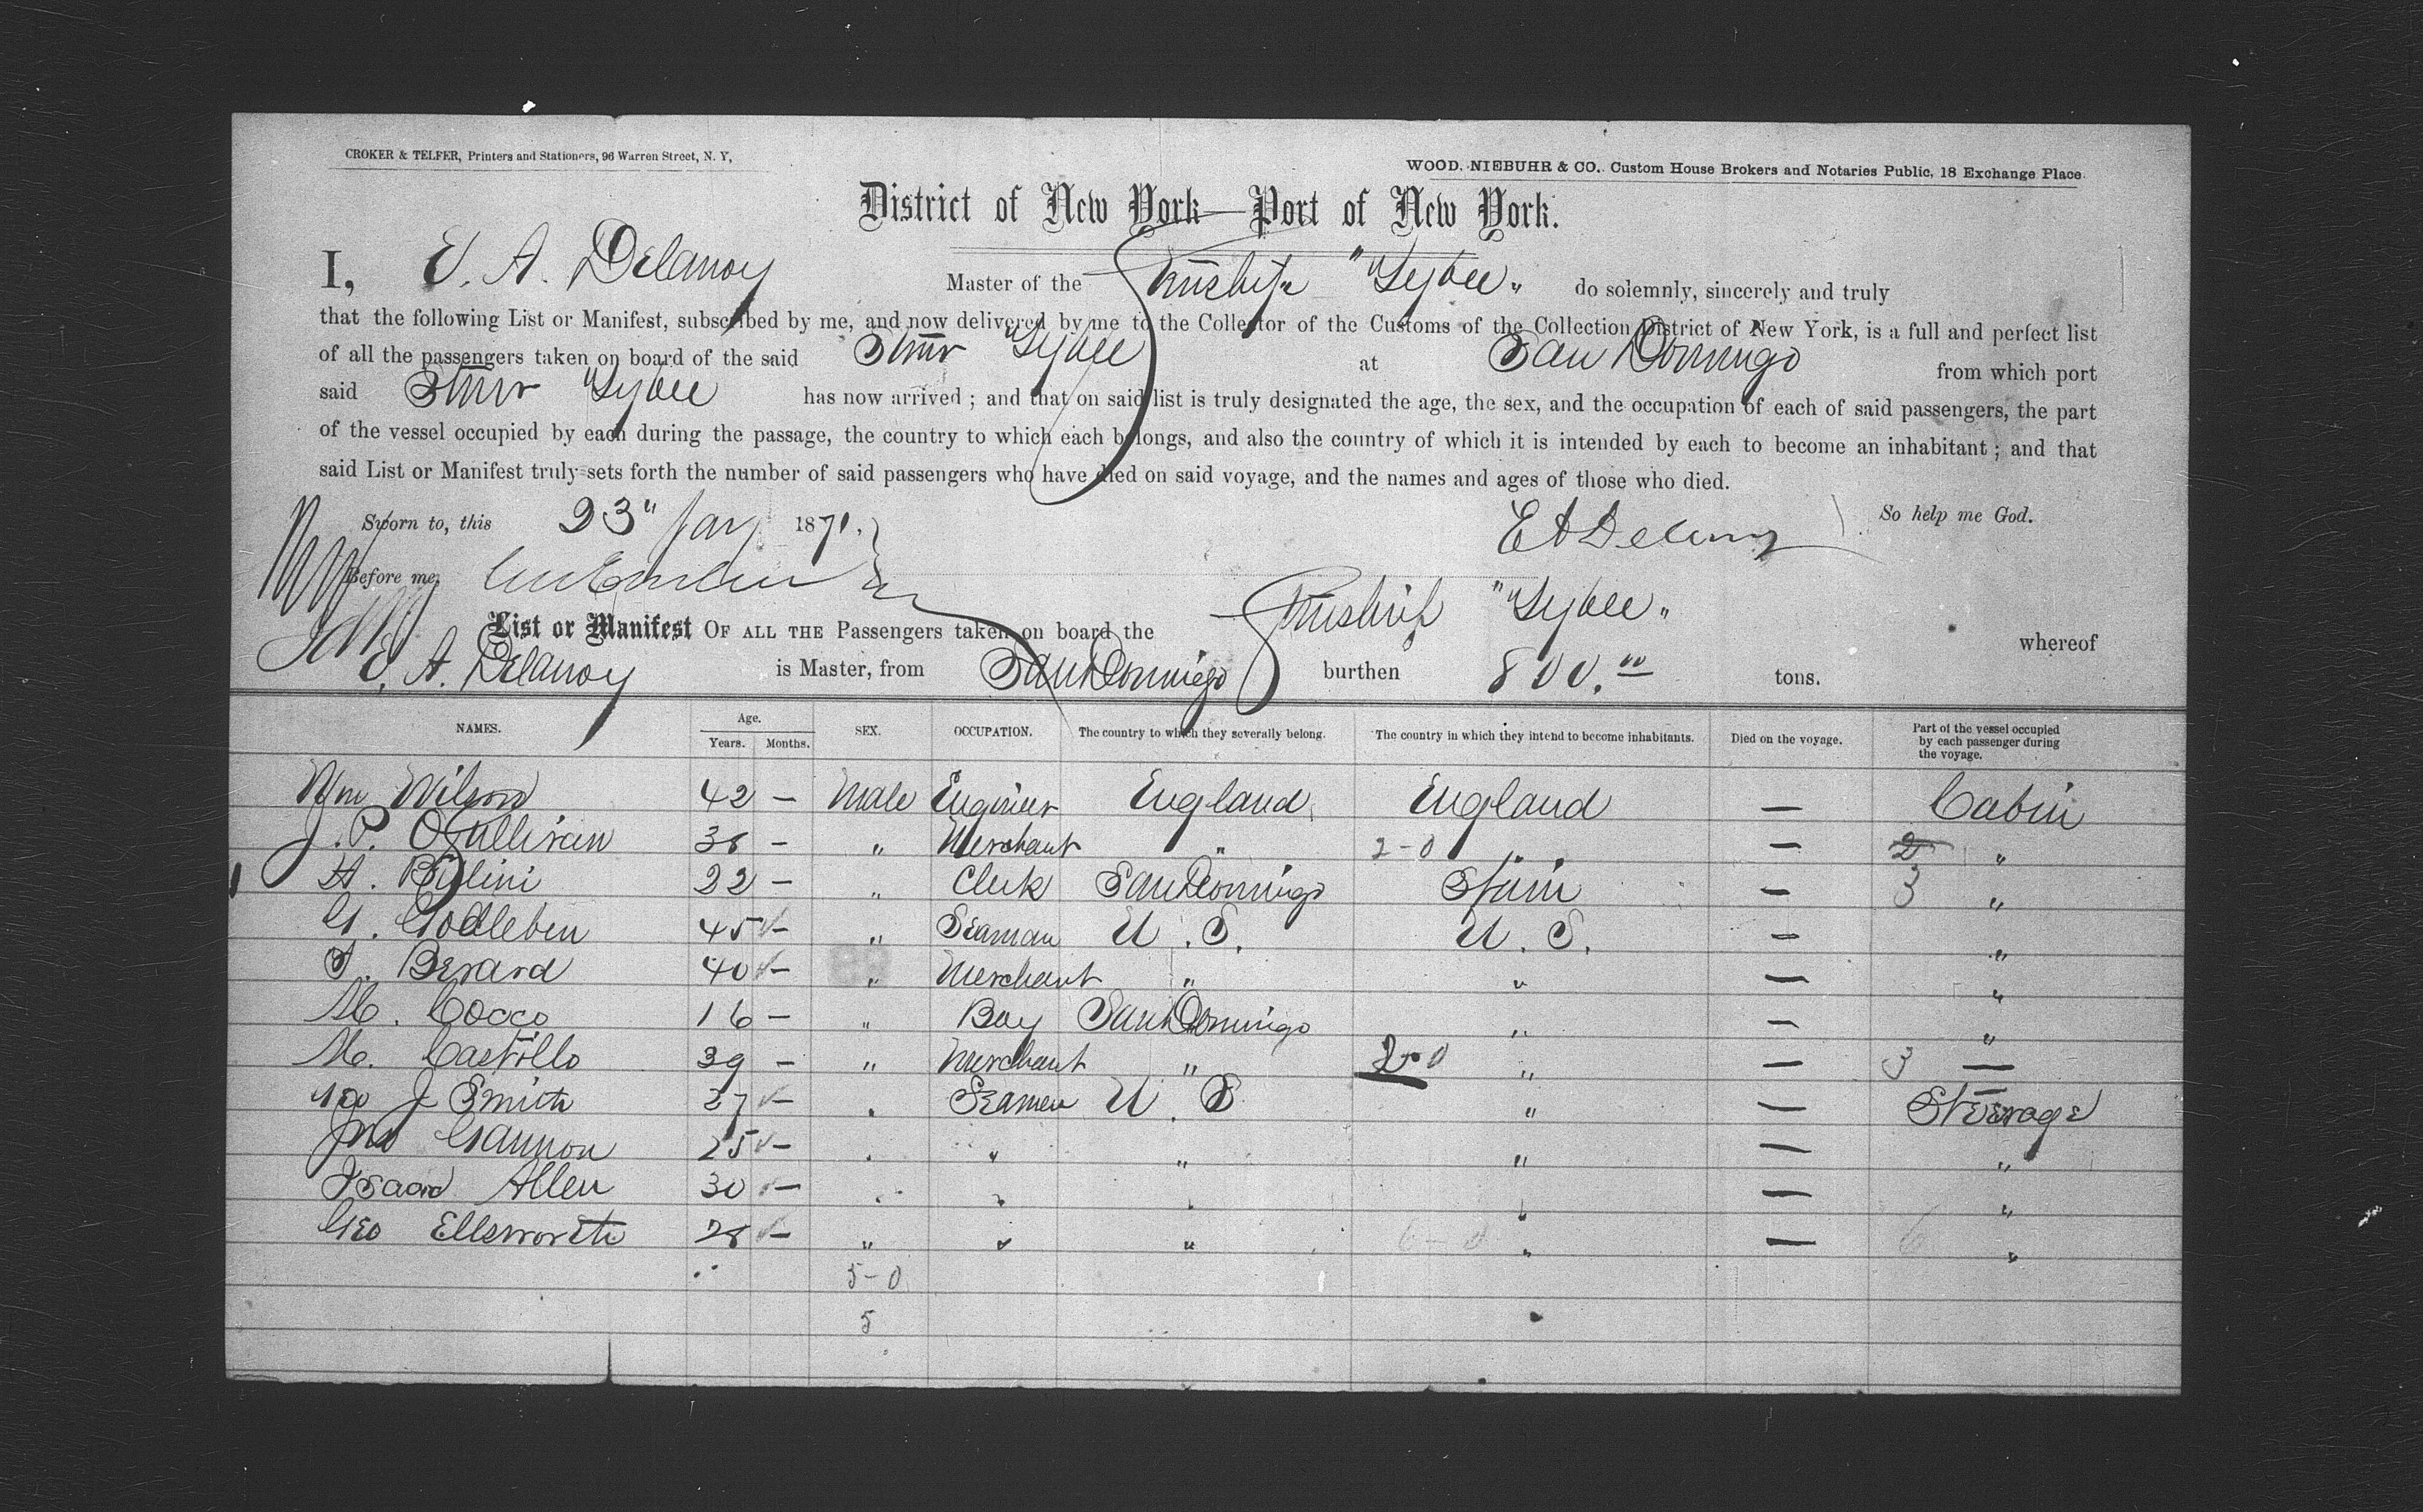 CROKER & TELFER, Printers and Stationers, 96 Warren Street, N. Y,
WOOD. NIEBUHR & CO. Custom House Brokers and Notaries Public, 18 Exchange Place.
District of New York—Port of New York.
I, E. A. Delanoy Master of the "Tybee" do solemnly, sincerely and truly
that the following List or Manifest, subscribed by me, and now delivered by me to the Collector of the Customs of the Collection District of New York, is a full and perfect list
of all the passengers taken on board of the said Stmr Tybee at San Domingo from which port
said Stmr "Tybee has now arrived ; and that on said list is truly designated the age, the sex, and the occupation of each of said passengers, the part
of the vessel occupied by each during the passage, the country to which each belongs, and also the country of which it is intended by each to become an inhabitant ; and that
said List or Manifest truly sets forth the number of said passengers who have died on said voyage, and the names and ages of those who died.
Sworn to, this 23" Jany 1871. So help me God.
Before me, E A Delanoy
List or Manifest OF ALL THE Passengers taken on board the "Tybee" whereof
E. A. Delanoy is Master, from San Domingo burthen 800. tons.
NAMES. Age. Years. Months. SEX. OCCUPATION. The country to which they severally belong. The country in which they intend to become inhabitants. Died on the voyage. Part of the vessel occupied by each passenger during the voyage.
Wm Wilson 42 — Male Engineer England England — Cabin
J. P. OSullivan 38 — " Merchant " 2-0 " — 2 "
A. 22 — " Clerk San Domingo — 3 "
G. Godleben 45 — " Seaman U. S. U. S. — "
Berard 40 — " Merchant " " — "
M. Cocco 16 — " Boy San Domingo " — "
M. Castillo 39 — " Merchant " 2-0 " — 3 —
J Smith 27 — " Seamen U. S " — Steerage
Jno Gannon 25 — " " " " — "
Isaac Allen 30 — " " " " — "
Geo Ellsworth 28 — " " " 6-0 " — 6 "
5-0
5